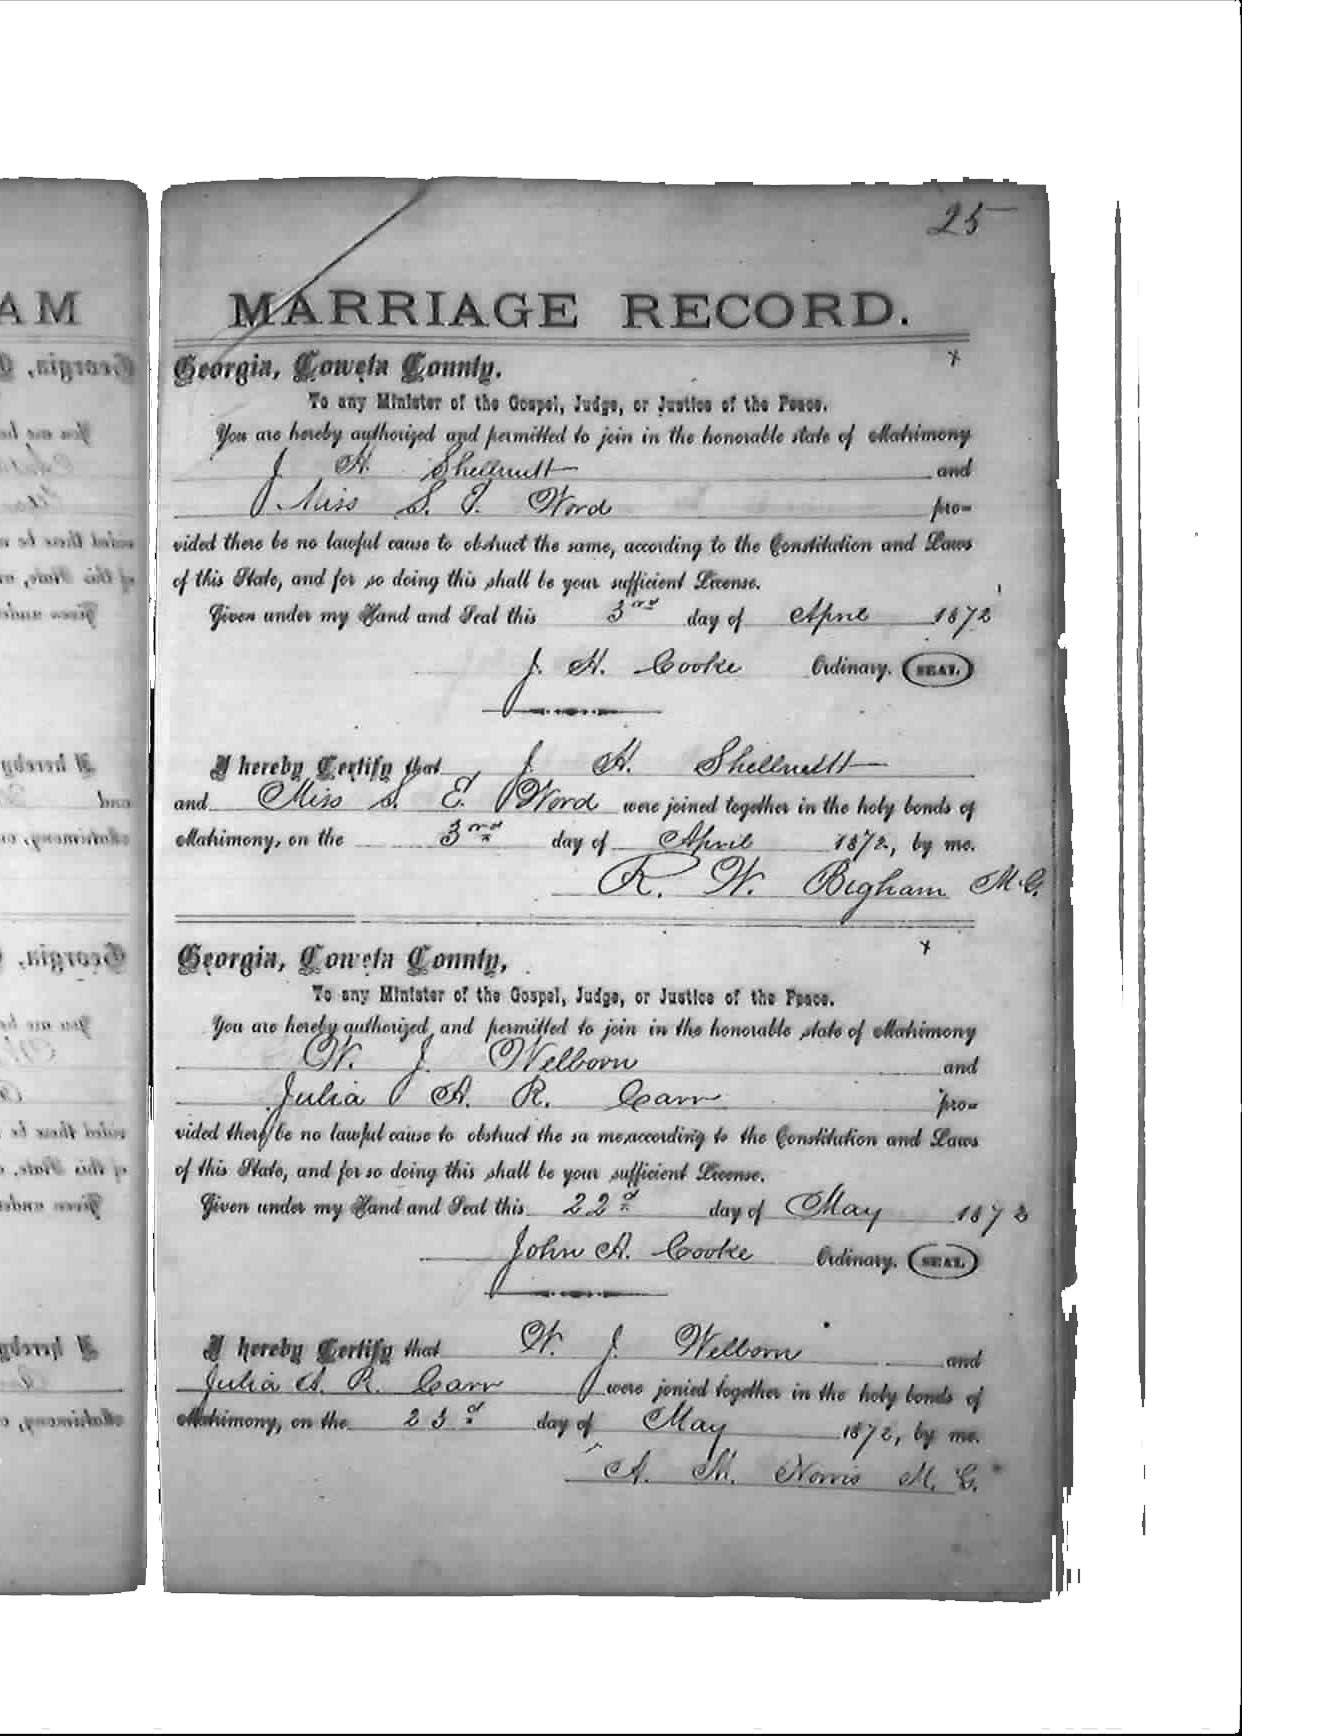 25
MARRIAGE RECORD.
Georgia, Coweta County.
To any Minister of the Gospel, Judge, or Justice of the Peace.
You are hereby authorized and permitted to join in the honorable state of Matrimony
J. H. Shellnutt and
Miss S. F. Word pro-
vided there be no lawful cause to obstruct the same, according to the Constitution and Laws
of this State, and for so doing this shall be your sufficient License.
Given under my Hand and Seal this 3rd day of April 1872
J. H. Cooke Ordinary. SEAL.
I hereby Certify that J. H. Shellnutt
and Miss S. E. Word were joined together in the holy bonds of
Matrimony, on the 3rd day of April 1872, by me.
R. W. Bigham M.G.
Georgia, Coweta County,
To any Minister of the Gospel, Judge, or Justice of the Peace.
You are hereby authorized, and permitted to join in the honorable state of Matrimony
W. J. Welborn and
Julia A. R. Carr pro-
vided there be no lawful cause to obstruct the sa me, according to the Constitution and Laws
of this State, and for so doing this shall be your sufficient License.
Given under my Hand and Seal this 22d day of May 1872
John A. Cooke Ordinary. SEAL.
I hereby Certify that W. J. Welborn and
Julia A. R. Carr were jonied together in the holy bonds of
Matrimony, on the 23d day of May 1872, by me.
A. M. Norris M. G.